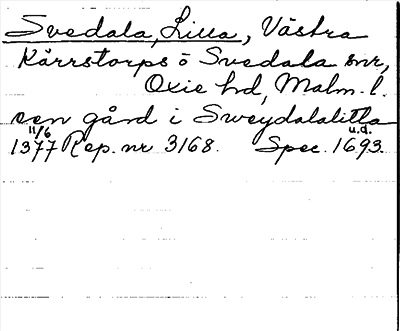 Svedala, Lilla, Västra
Kärrstorps o Svedala snr,
Oxie hd, Malm. l.
een gård i Sweydalalitla
11/6 u.d.
1377 Rep. nr 3168. Spec. 1693.